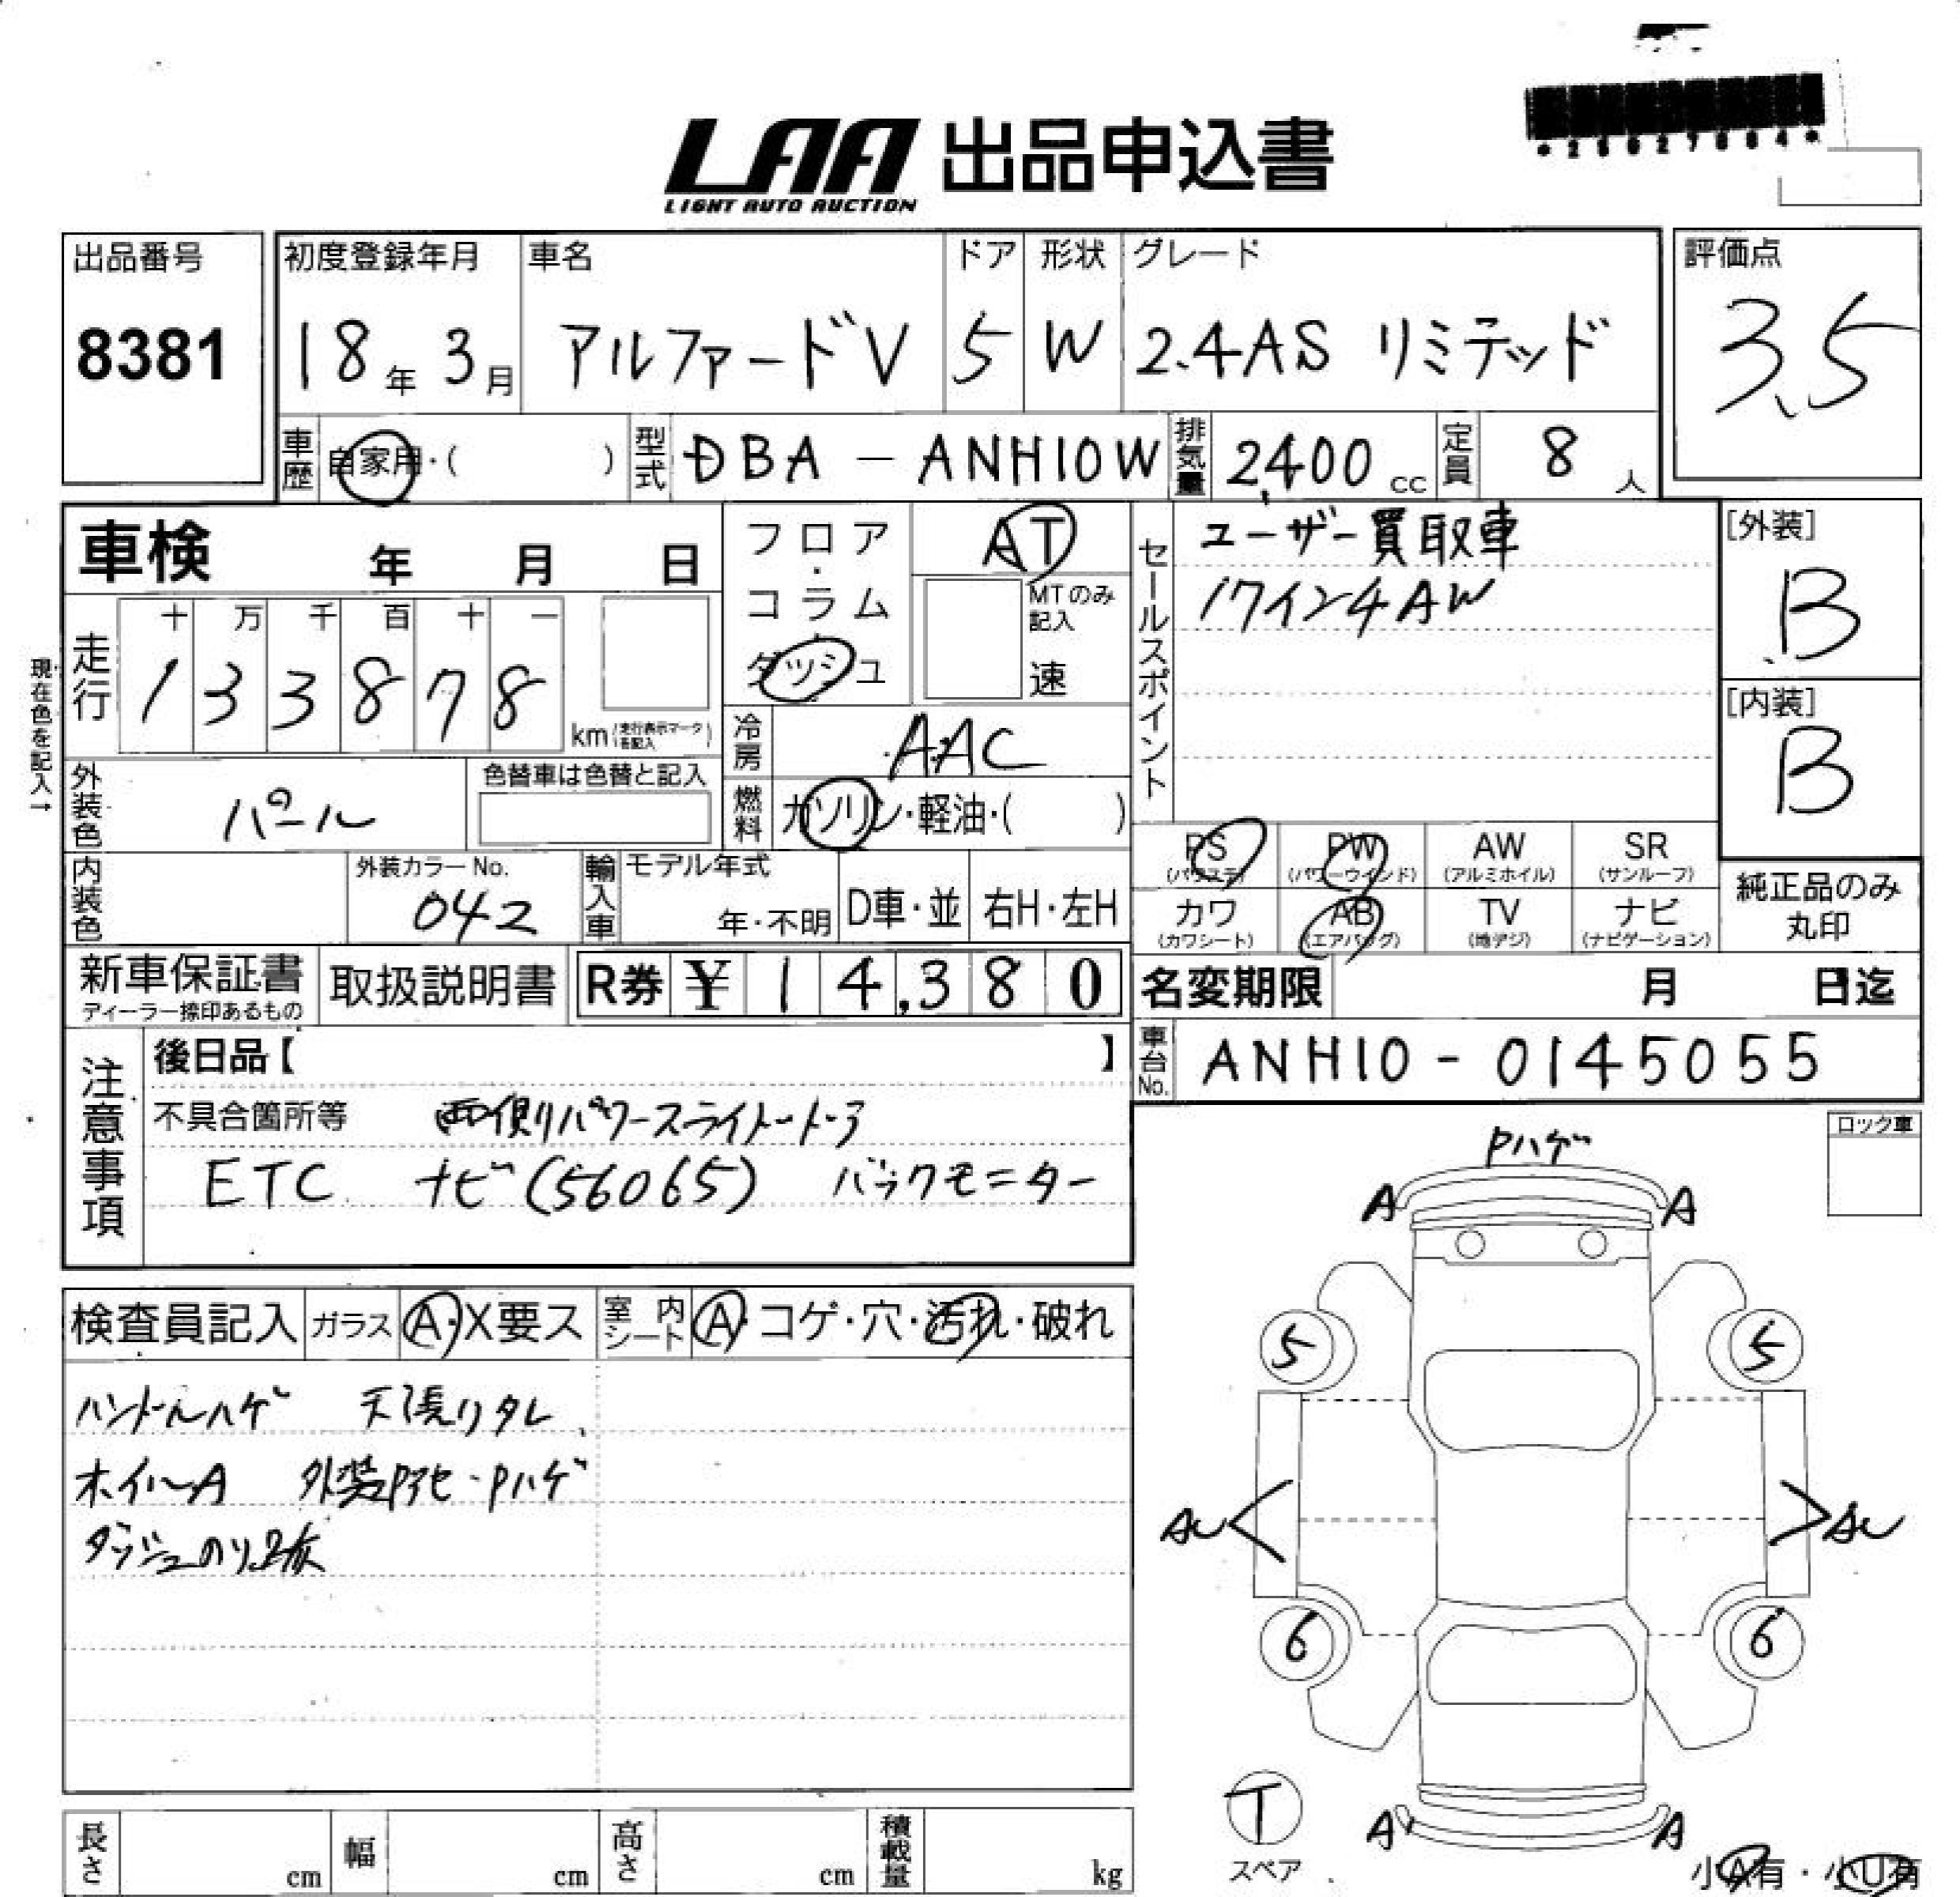 LAA 出品申込書
LIGHT AUTO AUCTION
出品番号
8381
初度登録年月
18年 3月
車名
アルファードV
ドア
5
形状
W
グレード
2.4AS リミテッド
評価点
3.5
車歴 自家用・( )
型式 DBA-ANH10W
排気量 2,400cc
定員 8人
車検 年 月 日
フロア・コラム・ダッシュ
AT
MTのみ記入
速
セールスポイント
ユーザー買取車
17インチAW
[外装]
B
[内装]
B
現在色を記入→
走行
十 万 千 百 十 一
1 3 3 8 7 8
km (走行表示マークを記入)
冷房 AAC
燃料 ガソリン・軽油・( )
外装色 パール
色替車は色替と記入
内装色
外装カラーNo.
042
輸入車
モデル年式
年・不明
D車・並
右H・左H
PS (パワステ)
PW (パワーウインド)
AW (アルミホイル)
SR (サンルーフ)
カワ (カワシート)
AB (エアバッグ)
TV (地デジ)
ナビ (ナビゲーション)
純正品のみ
丸印
新車保証書
ディーラー捺印あるもの
取扱説明書
R券 ¥ 14,380
名変期限 月 日迄
車台No. ANH10-0145055
注意事項
後日品【 】
不具合箇所等 両側パワースライドドア
ETC ナビ(56065) バックモニター
ロック車
Pハゲ
A A
検査員記入
ガラス A・X要ス
室内シート A・コゲ・穴・汚れ・破れ
ハンドルハゲ 天張りタレ
ホイールA 外装Pアセ・Pハゲ
5 5
AU AU
6 6
T
スペア
A A
小A有・小U有
長さ cm
幅 cm
高さ cm
積載量 kg